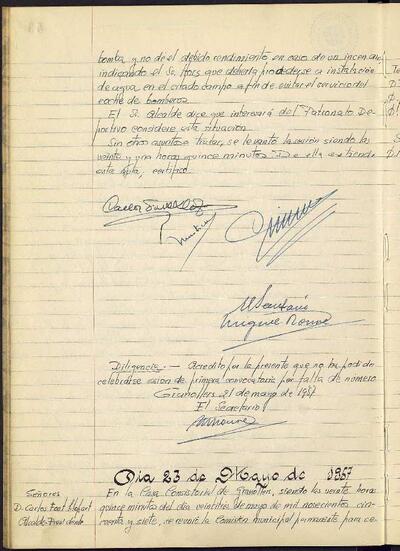 bomba y no dé el debido rendimiento en caso de un incendio
indicando el Sr. que debería procederse a instalación
de agua en el citado campo a fin de evitar el servicio del
coche de bomberos.
El Sr. Alcalde dice que interesará del Patronato De-
portivo considere esta situación.
Sin otros asuntos a tratar, se levantó la sesión siendo las
veinte y una horas quince minutos. De ella se extiende
esta Acta, certifico.
El Secretario
Diligencia.— Acredito por la presente que no ha podido
celebrarse sesion de primera convocatoria por falta de número
Granollers 21 de mayo de 1957
El Secretario
Dia 23 de Mayo de 1957
Señores
D. Carlos Font Llopart
Alcalde-Presidente
En la Casa Consistorial de Granollers, siendo las veinte horas
quince minutos del día veintitres de mayo de mil novecientos cin-
cuenta y siete, se reunió la Comisión municipal permanente para ce-